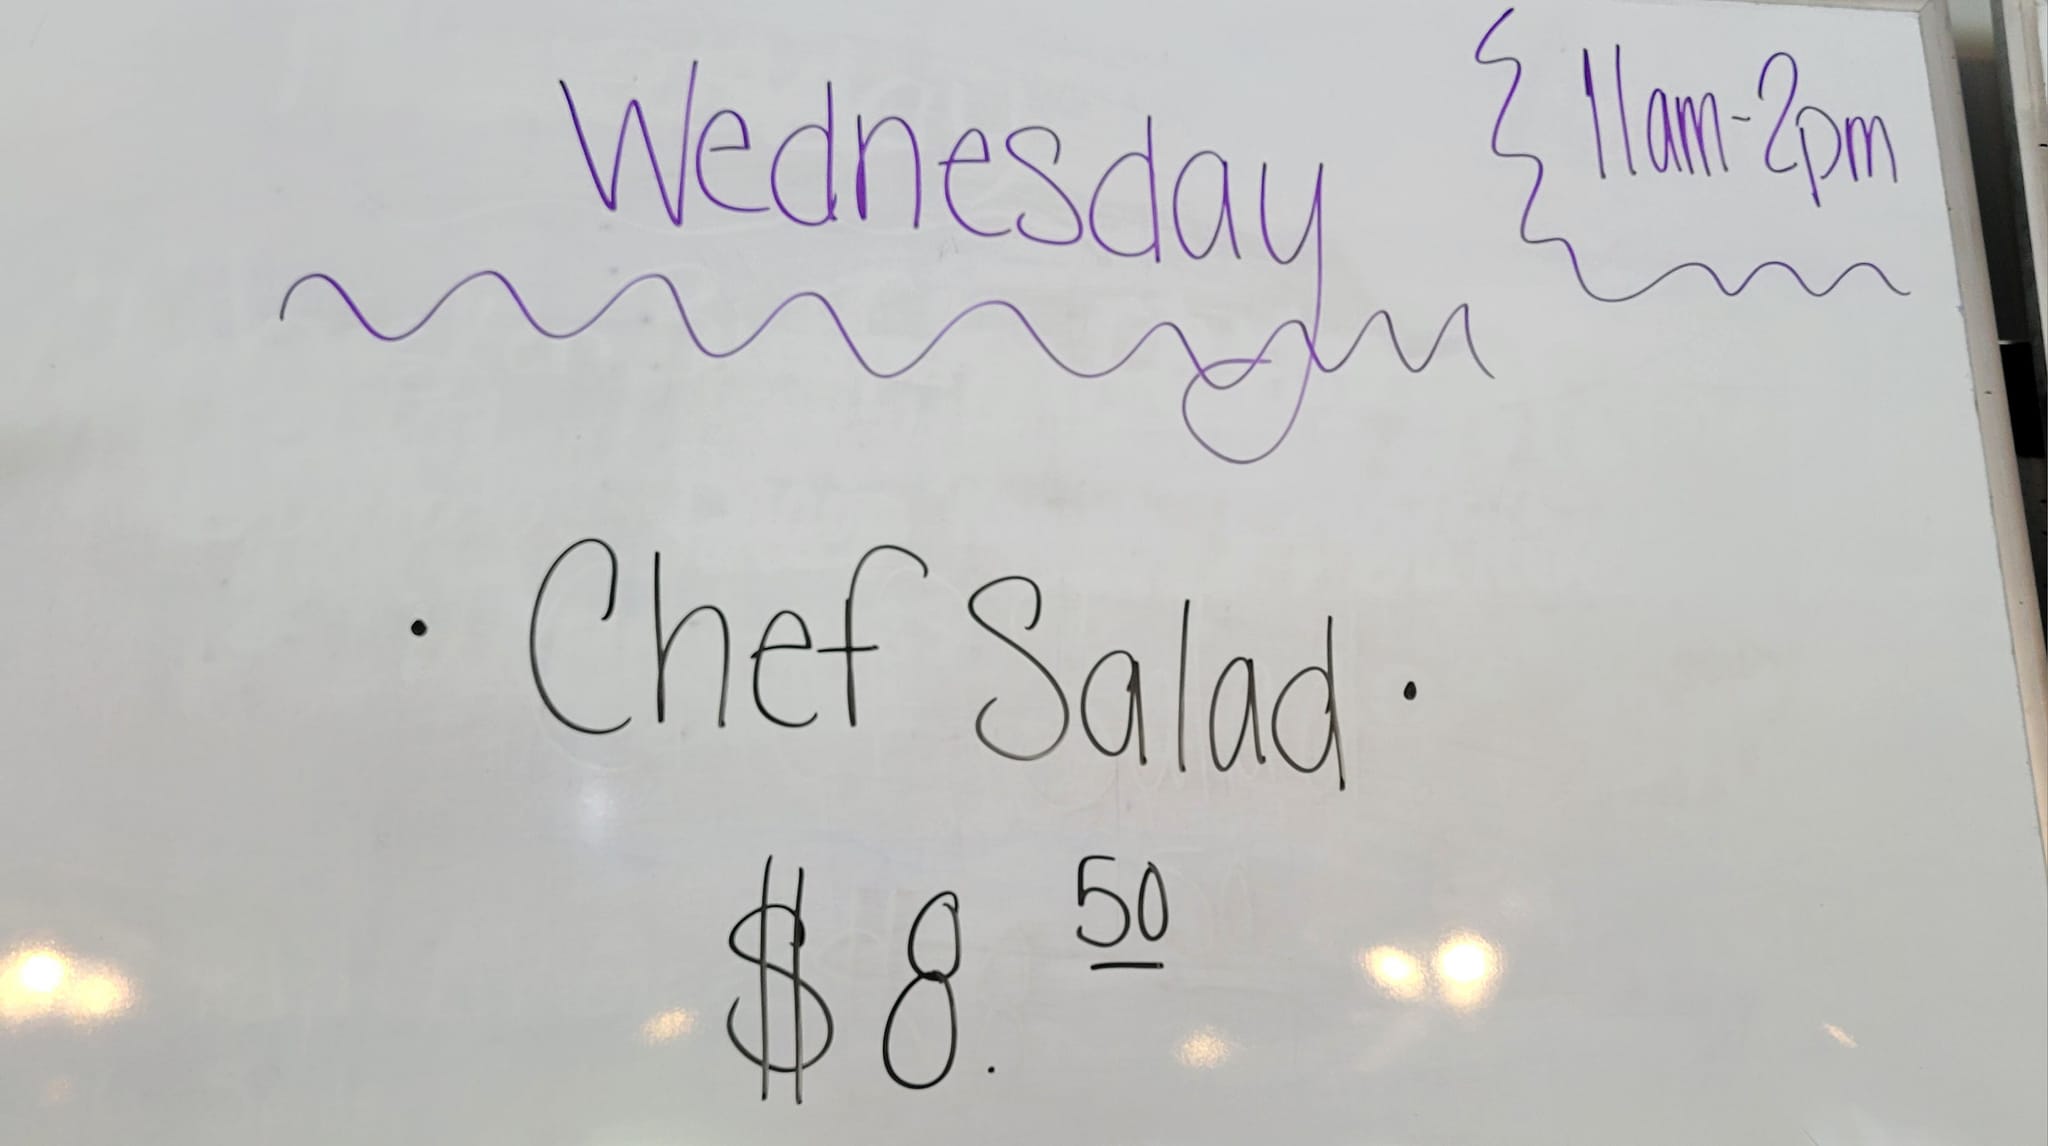 Wednesday
11am-2pm
• Chef Salad •
$8.50